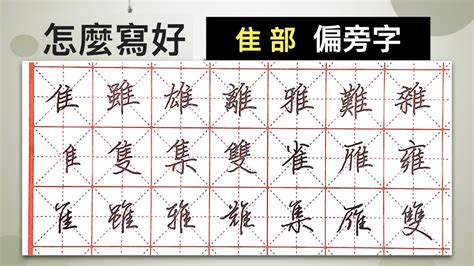 怎麼寫好 隹部 偏旁字
隹雖雄離雅難雜
隹隻集雙雀雁雍
隹雖雅雄集雁雙